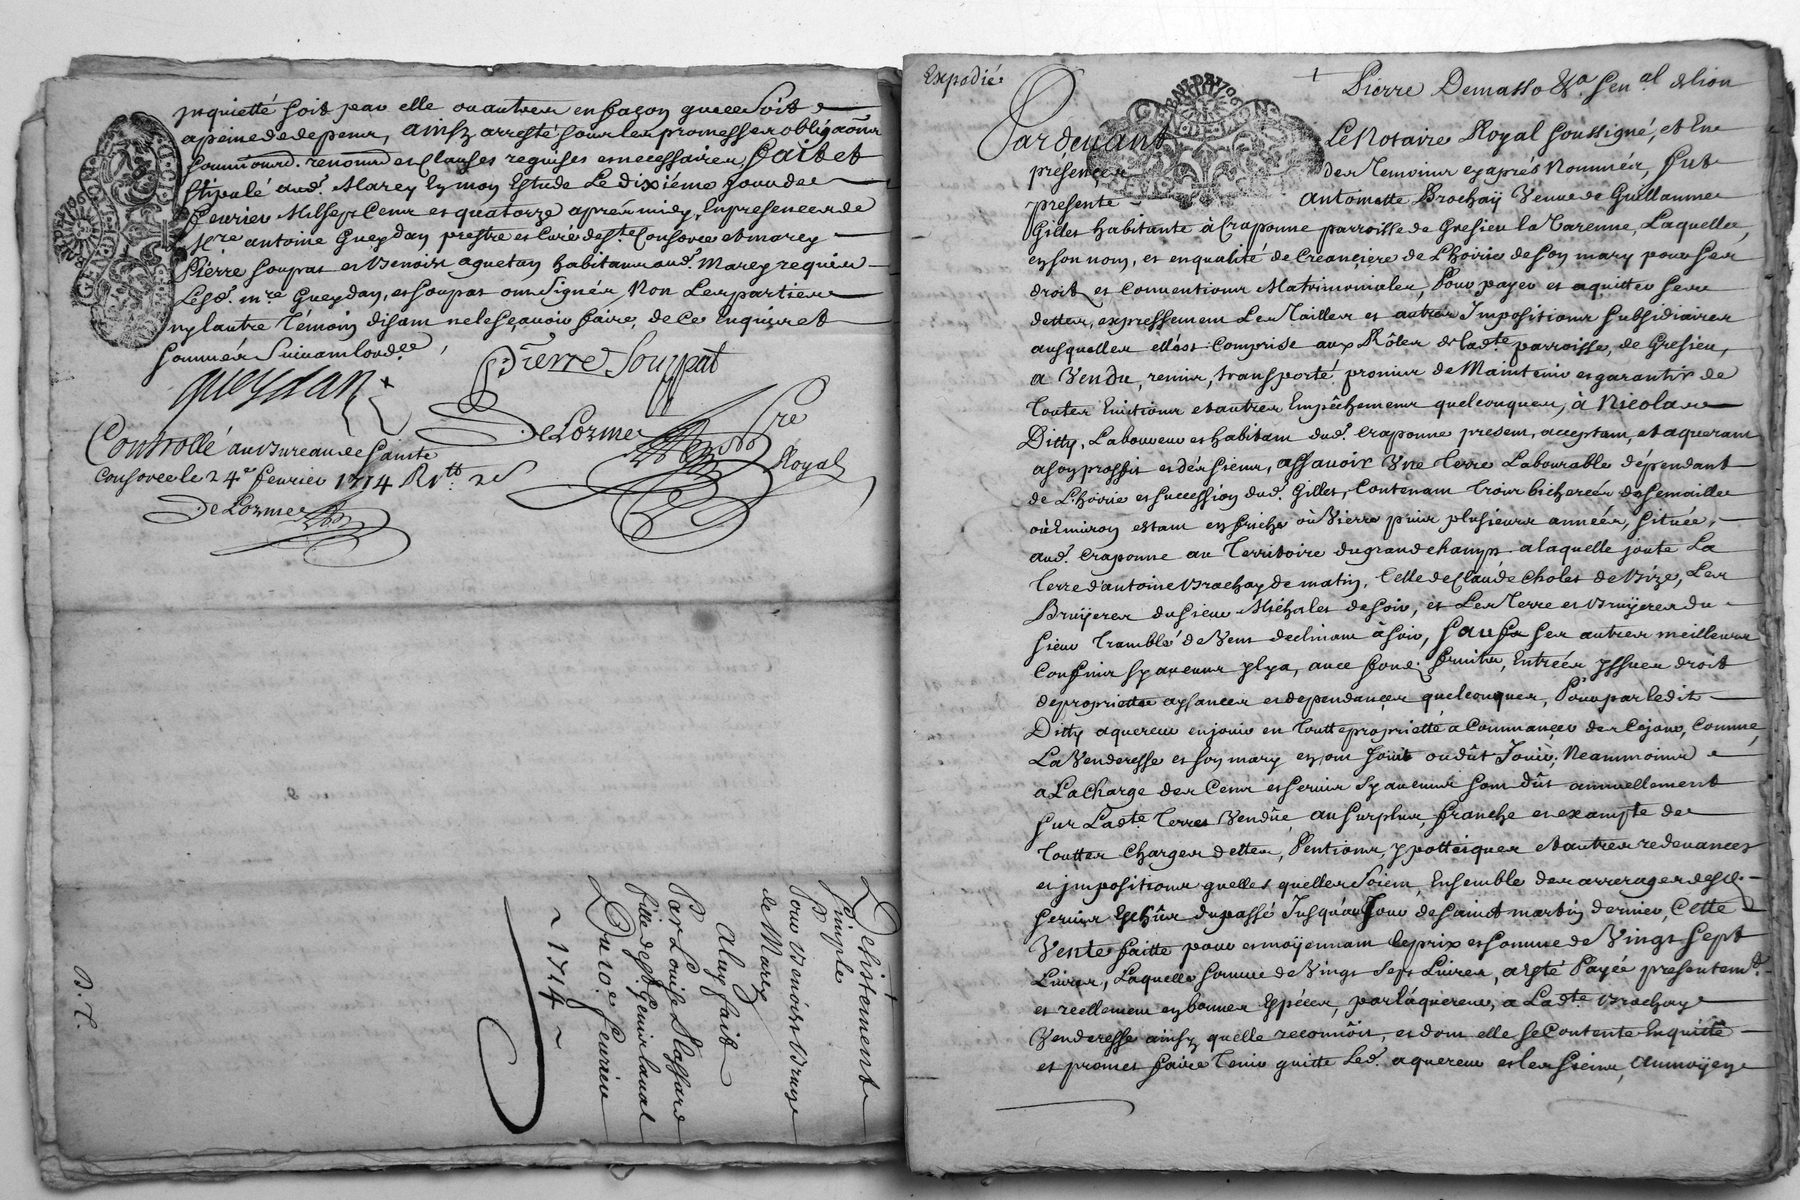 inquietté soit par elle ou autres en façon que ce soit
a peine de depens, ainsy arresté sour les promesses obliga͠ons
soumi͠ons. renon͠. et clauses requises et necessaires, fait et
stipulé aud. Marcy en mon Estude Le dixiéme jour de
fevrier Mil sept Cens et quatorze aprés midy, En presence de
M.re antoine Gueydan prestre et Curé de S.te Consorce et marcy
Pierre soupat et Benoist aguetan habitans aud. Marcy requis
Lesd. m.re Gueydan, et soupat ont signés Non Les parties
ny lautre Témoin disant ne le sçavoir faire, de ce Enquis et
sommés suivant lord.ce
gueydan
Pierre Souppat
DeLorme
N.re
Royal
Controllé au Bureau de Sainte
Consorce le 24.e fevrier 1714 R
DeLorme
Desistement
simple
P.
Pour Benoist
de Marcy
alny fait
P
Par Louise
fille de
Du 10.e fevrier
~ 1714 ~
Expedié
Pierre Demasso gen.al de lion
Pardevant Le Notaire Royal soussigné, et En
présence des Temoins cy aprés Nommés, fut
présente antoinette Brochaÿ Veuve de Guillaume
Gilles habitante à Craponne parroisse de Gresieu la Varenne, Laquelle
en son nom, et en qualité de Creanciere de L'hoirie de son mary pour ses
droits et Conventions Matrimoniales, Pour payer et aquitter ses
dettes, expressement Les Tailles et autres Impositions subsidiaires
ausquelles elle est Comprise aux Rôles de lad.te parroisse, de Gresieu,
a Vendu, remis, transporté promis de Maintenir et garantir de
Toutes Evictions et autres Empêchemens quelconques, à Nicolas
Ditty, Laboureur et habitant dud. Craponne present, acceptant, et aquerant
a son proffit et des siens, assavoir Une Terre Labourable dépendant
de L'hoirie et succession dud. Gilles, Contenant Trois bicherées de semaille
où Environ estant en friche où Vierre puis plusieurs années, située,
aud. Craponne au Territoire du grand champs a laquelle joute La
Terre d'antoine Brochay de matin, Celle de Claude Choles de Bize, Les
Bruÿeres du sieur Michales de soir, et Les Terre et Bruÿeres du
sieur Tramblé de Vens declinant à soir, sauf ses autres meilleurs
Confins sy aucuns y en a, avec fond, fruits, Entrées yssues droit
de proprietté aysances et dependances quelconques, Pour par ledit
Ditty aquereur en jouir en Toutte proprietté a Commancer des Cejour, Comme
La Venderesse et son mary en ont Joüit où dût Jouir; Neammoins
a La charge des Cens et servis sy aucuns sont dûs annuellement
sur Lad.te Terre Vendüe, au surplus, franche et exampte de
Touttes Charges dettes, Pentions, ypotteques et autres redevances
et impositions quelles quelles soient, Ensemble des arrerages desd.
servis Eschûs du passé Jusqu'au Jour de saint martin dernier, Cette
Vente faitte pour et moÿennant Le prix et somme de Vingt sept
Livres, Laquelle somme de Vingt sept Livres, a esté Payée presentem.t
et reellement en bonnes Especes, par l'aquereur, a Lad.te Brochay
Venderesse ainsy quelle reconnôit, et dont elle se Contente En quitte
et promet faire Tenir quitte Led. aquereur et les siens, au moÿen